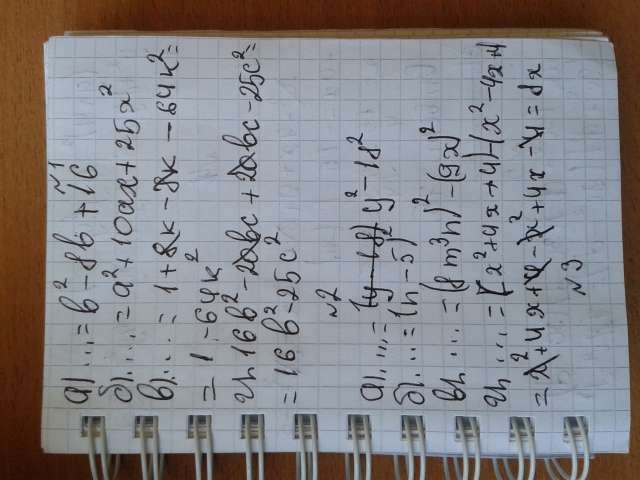 №1
а)...=b²-8b+16
б)....=a²+10ax+25x²
в)....=1+8к-8к-64к²=
=1-64к²
г) 16b²-20bc+20bc-25c²=
=16b²-25c²
№2
а)....= y²-18²
б)...=(n-5)²
в)...=(8m³n)²-(9x)²
г)...=(x²+4x+4)-(x²-4x+4
=x²+4x+4-x²+4x-4=8x
№3